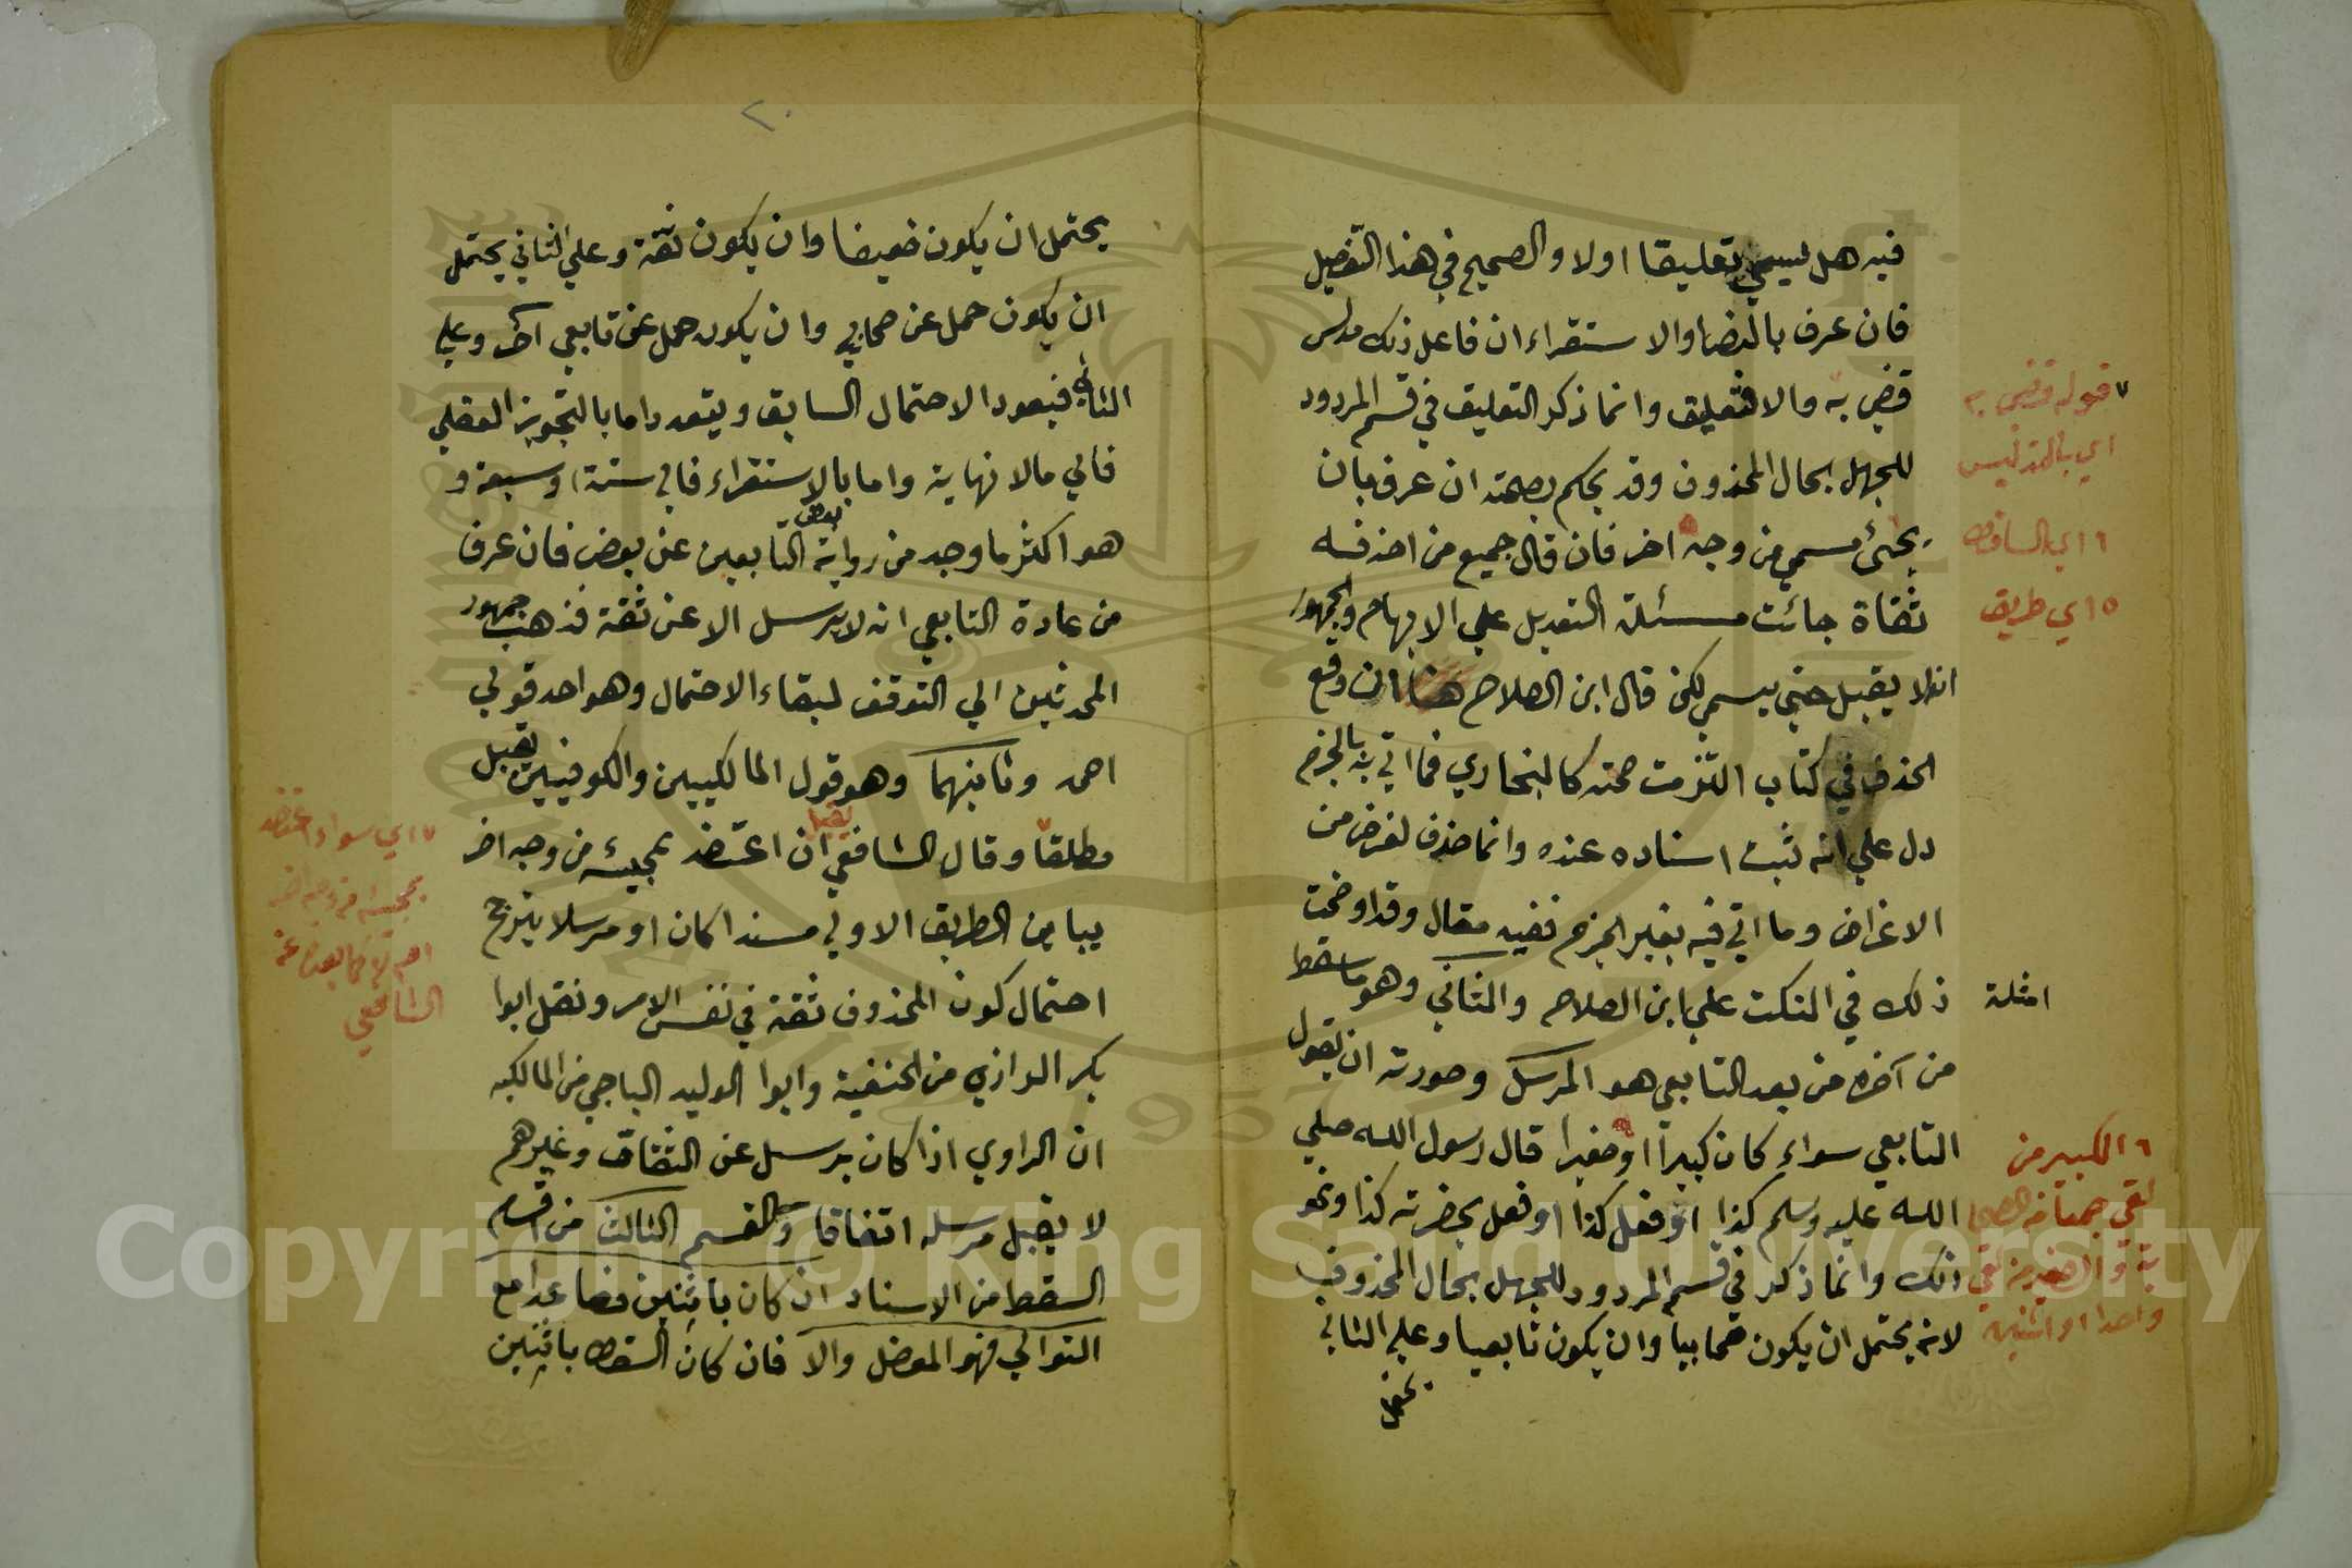 فيه هل يسمي تعليقا اولا والصحيح في هذا التفصيل
فان عرف بالنص او الاستقراء ان فاعل ذلك مدلس
قضي به والا فتعليق وانما ذكر التعليق في قسم المردود
للجهل بحال المحذوف وقد يحكم بصحته ان عرف بان
يجئ مسمي من وجه اخر فان قال جميع من احذفه
ثقاة جائت مسئلة التعديل علي الابهام والجمهور
انه لا يقبل حتي يسمي لكن قال ابن الصلاح هنا ان وقع
الحذف في كتاب التزمت صحته كالبخاري فما اتي به بالجزم
دل علي انه ثبت اسناده عنده وانما حذف لغرض من
الاغراض وما اتي فيه بغير الجزم ففيه مقال وقد اوضحت
امثلة ذلك في النكت علي ابن الصلاح والثاني وهو ما سقط
من آخره من بعد التابعي هو المرسل وصورته ان يقول
التابعي سواء كان كبيرا او صغيرا قال رسول الله صلي
الله عليه وسلم كذا او فعل كذا او فعل بحضرته كذا ونحو
ذلك وانما ذكر في قسم المردود للجهل بحال المحذوف
لانه يحتمل ان يكون صحابيا وان يكون تابعيا وعلي الثاني
يحتمل
٧ قوله قضي به
اي بالتدليس
٦ اي الساقط
٥ اي طريق
٦ الكبير من
لقي جمعا من الصحا
بة والصغير من لقي
واحدا او اثنين
٢٠
يحتمل ان يكون ضعيفا وان يكون ثقة وعلي الثاني يحتمل
ان يكون حمل عن صحابي وان يكون حمل عن تابعي آخر وعلي
الثاني فيعود الاحتمال السابق ويتعدد اما بالتجويز العقلي
فالي مالا نهاية واما بالاستقراء فالي ستة او سبعة و
هو اكثر ما وجد من رواية بعض التابعين عن بعض فان عرف
من عادة التابعي انه لا يرسل الا عن ثقة فذهب جمهور
المحدثين الي التوقف لبقاء الاحتمال وهو احد قولي
احمد وثانيهما وهو قول المالكيين والكوفيين يقبل
مطلقا وقال الشافعي يقبل ان اعتضد بمجيئه من وجه اخر
يباين الطريق الاولي مسندا كان او مرسلا يترجح
احتمال كون المحذوف ثقة في نفس الامر ونقل ابوا
بكر الرازي من الحنفية وابوا الوليد الباجي من المالكيه
ان الراوي اذا كان يرسل عن الثقات وغيرهم
لا يقبل مرسله اتفاقا والقسم الثالث من اقسام
السقط من الاسناد ان كان باثنين فصاعدا مع
التوالي فهو المعضل والا فان كان السقط باثنين
٧ اي سواء اعتضد
بمجيئه من وجه اخر
الشافعي
1957
Copyright © King Saud University